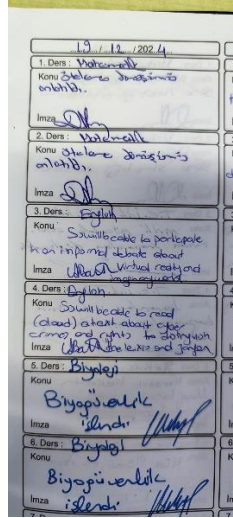 19 / 12 / 2024
1. Ders : Matematik
Konu Öteleme dönüşümü
anlatıldı.
İmza
2. Ders : Matematik
Konu Öteleme dönüşümü
anlatıldı.
İmza
3. Ders : English
Konu Ss will be able to participate
in an informal debate about
İmza Virtual reality and
4. Ders : English
Konu Ss will be able to read
(aloud) a text about cyber
crimes and rights to
İmza the lexis and jargon
5. Ders : Biyoloji
Konu
Biyogüvenlik
işlendi
İmza
6. Ders : Biyoloji
Konu
Biyogüvenlik
işlendi.
İmza